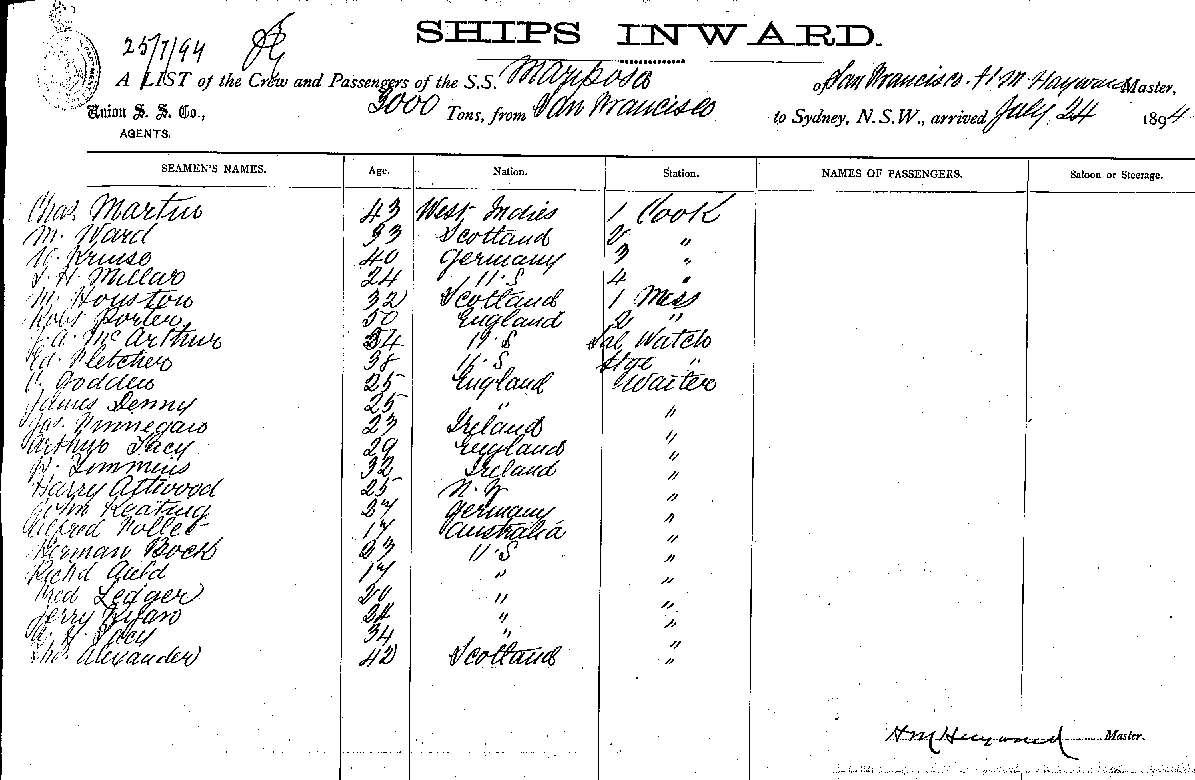 SHIPS INWARD.
25/7/94
A LIST of the Crew and Passengers of the S.S. Mariposa of San Francisco. H M Hayward Master,
Union S. S. Co., 3000 Tons, from San Francisco to Sydney, N.S.W., arrived July 24 1894
AGENTS.
SEAMEN'S NAMES. Age. Nation. Station. NAMES OF PASSENGERS. Saloon or Steerage.
Chas Martin 43 West Indies 1 Cook
M. Ward 33 Scotland 2 "
Kruse 40 Germany 3 "
H Millar 24 U.S 4 "
M. Houston 32 Scotland 1 Mess
Robt Porter 30 England 2 "
McArthur 34 U.S Sal Watch
Ed. Fletcher 38 U.S Stge "
Godden 25 England Waiter
James Denny 25 " "
Jas. Finnegan 23 Ireland "
Arthur Lacy 29 England "
Timmins 32 Ireland "
Harry Attwood 25 "
John Keating 27 Germany "
Alfred 17 Australia "
Herman Bock 23 U.S "
Richd Auld 17 " "
Fred Ledger 20 " "
Jerry Ryan 24 " "
34 " "
Thos Alexander 42 Scotland "
H M Hayward Master.